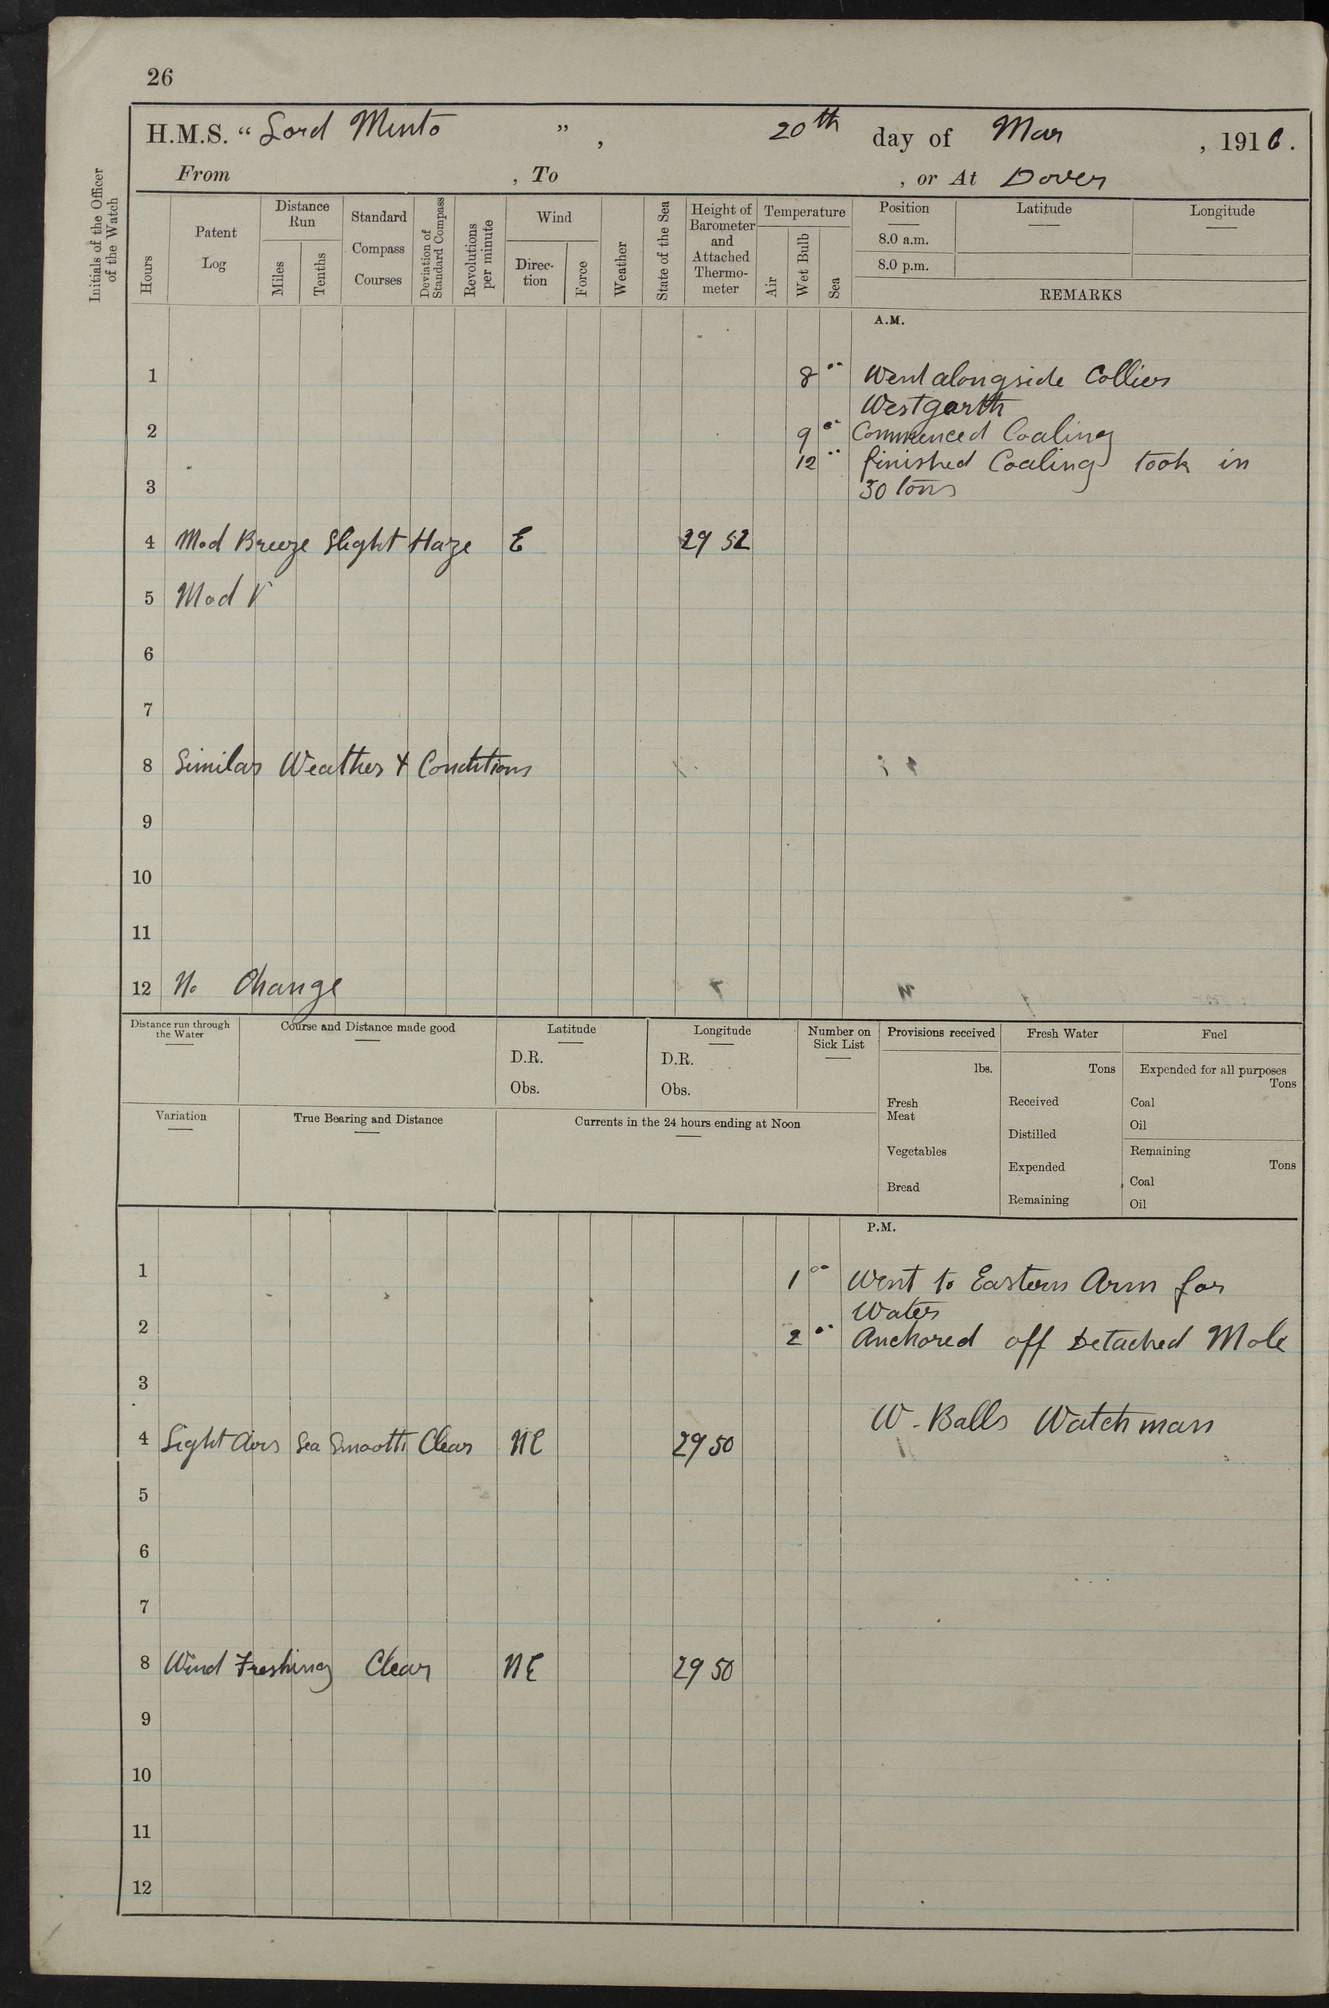 26
H.M.S. “ Lord Minto ” , 20th day of Mar , 1916.
From , To , or At Dover
Initials of the Officer of the Watch
Hours
Patent Log
Distance Run
Miles
Tenths
Standard Compass Courses
Deviation of Standard Compass
Revolutions per minute
Wind
Direction
Force
Weather
State of the Sea
Height of Barometer and Attached Thermometer
Temperature
Air
Wet Bulb
Sea
Position Latitude Longitude
8.0 a.m.
8.0 p.m.
REMARKS
A.M.
1 8 Went alongside Collier
Westgarth
2 9 Commenced Coaling
12 finished Coaling took in
3 30 tons
4 Mod Breeze Slight Haze E 29 52
5 Mod V
6
7
8 Similar Weather & Conditions
9
10
11
12 No Change
Distance run through the Water
Course and Distance made good
Latitude
D.R.
Obs.
Longitude
D.R.
Obs.
Number on Sick List
Provisions received
lbs.
Fresh Meat
Vegetables
Bread
Fresh Water
Tons
Received
Distilled
Expended
Remaining
Fuel
Expended for all purposes
Tons
Coal
Oil
Remaining
Tons
Coal
Oil
Variation
True Bearing and Distance
Currents in the 24 hours ending at Noon
P.M.
1 1 00 Went to Eastern Arm for
Water
2 2 Anchored off Detached Mole
3
W. Balls Watchman
4 Light Airs Sea Smooth Clear NE 29 50
5
6
7
8 Wind Freshing Clear NE 29 50
9
10
11
12